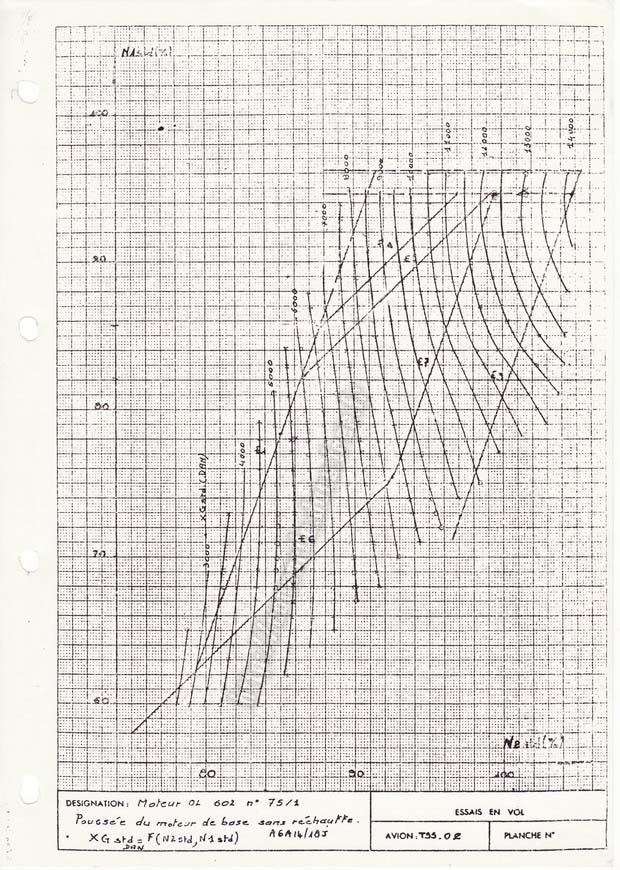 N1std(%)
100
90
80
70
60
80
90
100
N2std(%)
XGstd.(DAN)
3000
4000
5000
6000
7000
8000
9000
10000
11000
12000
13000
14000
A
E
E7
E3
E6
DESIGNATION: Moteur OL 602 n° 75/1
Poussée du moteur de base sans réchauffe.
XGstd = F(N2std, N1std)
DAN
ESSAIS EN VOL
AVION: TSS.02
PLANCHE N°